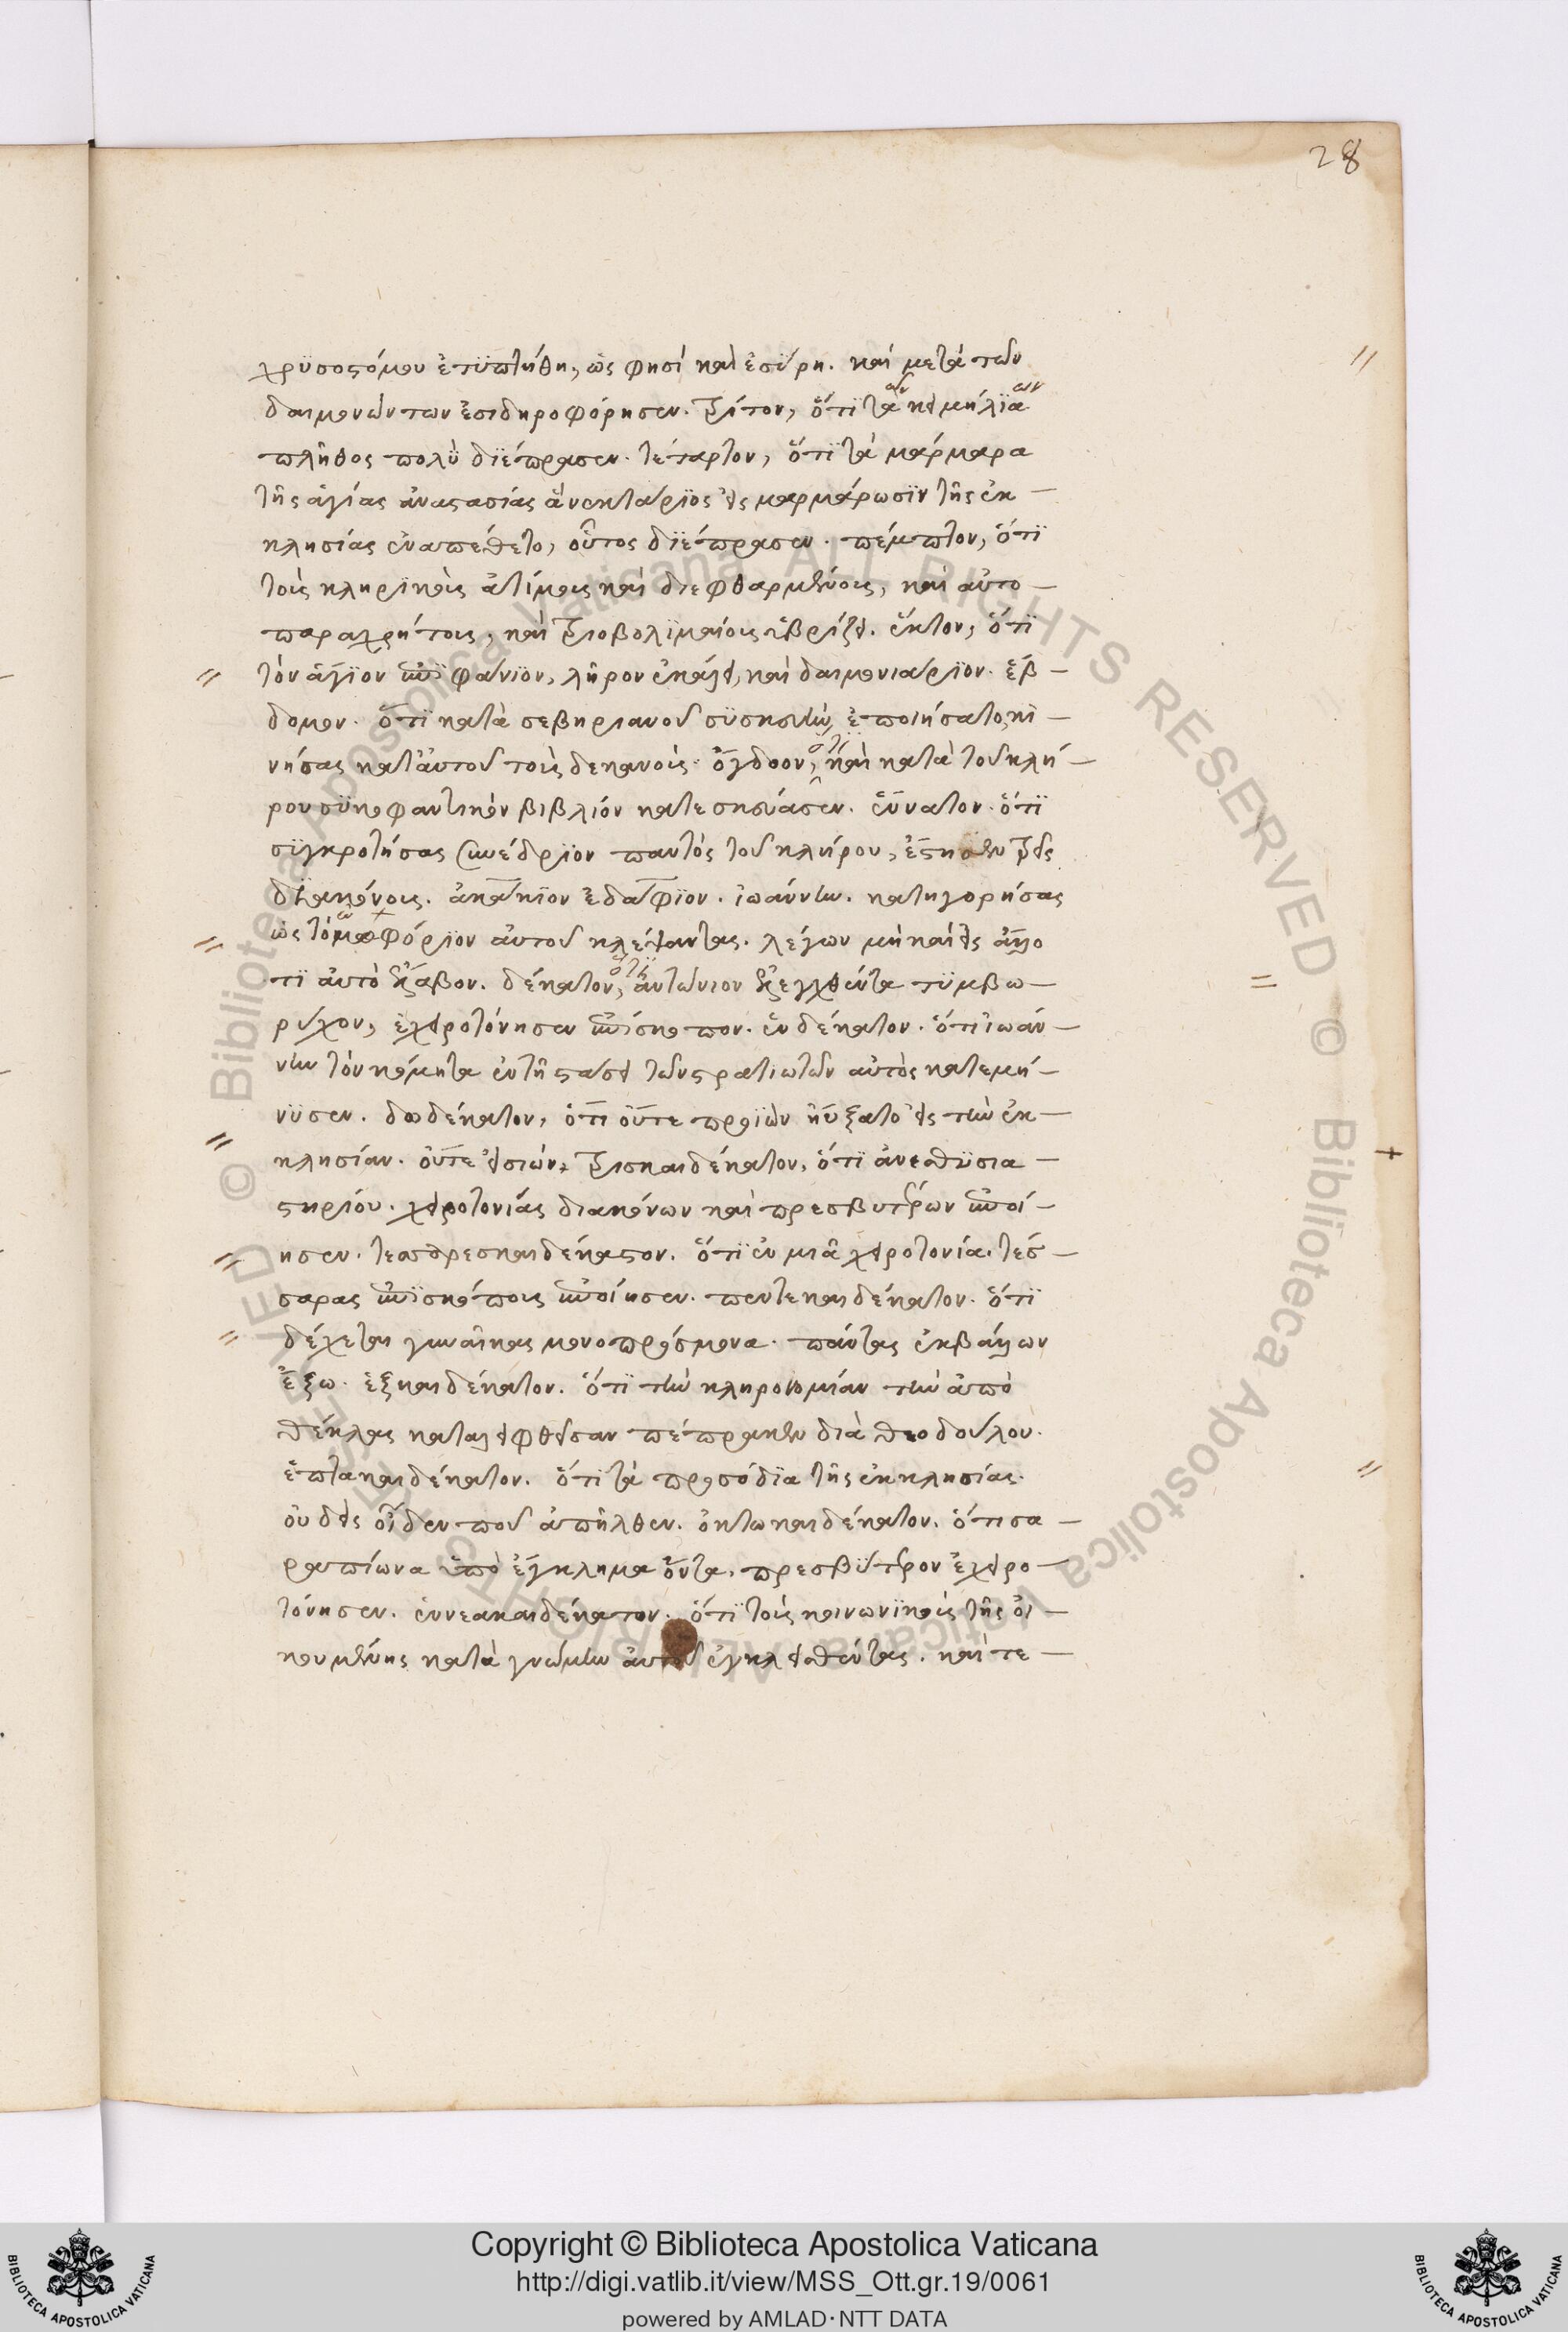 28
χρϋσοστόμου ἐτϋπτήθη, ὥς φησί καὶ ἐσΰρη. καὶ μετὰ τῶν
δαιμονώντων ἐσιδηροφόρησεν. τρίτον, ὅτϊ τὰ κειμήλϊα
πλῆθος πολὺ δϊέπρασεν. τέταρτον, ὅτϊ τὰ μάρμαρα
τῆς ἁγίας ἀναστασίας ἃ νεκτάρϊος εἰς μαρμάρωσϊν τῆς ἐκ-
κλησίας ἐναπέθετο, οὗτος δϊέπρασεν. πέμπτον, ὅτϊ
τοὺς κληρϊκοὺς ἀτίμους καὶ διεφθαρμένους, καὶ αὐτο-
παραχρήτους, καὶ τριοβολϊμαίους ὑβρίζει. ἕκτον, ὅτϊ
τὸν ἅγϊον ἐπϊφάνϊον, λῆρον ἐκάλει, καὶ δαιμονιάρϊον. ἕβ-
δομον. ὅτϊ κατὰ σεβηριανοῦ σϋσκευὴν ἐποιήσατο, κι-
νήσας κατ' αὐτοῦ τοὺς δεκανούς. ὄγδοον, ὅτϊ καὶ κατὰ τοῦ κλή-
ρου σϋκοφαντικὸν βιβλίον κατεσκεύασεν. ἔννατον. ὅτϊ
σϋγκροτήσας συνέδρϊον παντὸς τοῦ κλήρου, ἔστησεν τρεῖς
διακόνους. ἀκάκϊον ἐδάφϊον. ἰωάννην. κατηγορήσας
ὡς τὸ ὠμοφόρϊον αὐτοῦ κλέψαντας. λέγων μὴ καὶ εἰς ἄλλο
τϊ αὐτὸ ἔλαβον. δέκατον, ὅτϊ ἀντώνιον ἐξελεχθέντα τϋμβω-
ρύχον, ἐχειροτόνησεν ἐπίσκοπον. ἑνδέκατον. ὅτι ἰωάν-
νην τὸν κόμητα ἐν τῇ στάσει τῶν στρατιωτῶν αὐτὸς κατεμή-
νϋσεν. δωδέκατον, ὅτϊ οὔτε προϊὼν ηὔξατο εἰς τὴν ἐκ-
κλησίαν. οὔτε εἰσιών, τρισκαιδέκατον, ὅτϊ ἄνευ θϋσια-
στηρίου. χειροτονίας διακόνων καὶ πρεσβυτέρων ἐποί-
ησεν. τεσσαρεσκαιδέκατον. ὅτϊ ἐν μιᾷ χειροτονίᾳ. τέσ-
σαρας ἐπϊσκόπους ἐποίησεν. πεντεκαιδέκατον. ὅτϊ
δέχεται γυναῖκας μονοπρόσμονα. πάντας ἐκβάλλων
ἔξω. ἑξκαιδέκατον. ὅτϊ τὴν κληρονομίαν τὴν ἀπὸ
θέκλας καταλειφθεῖσαν πέπρακεν διὰ θεοδούλου.
ἑπτακαιδέκατον. ὅτϊ τὰ προσόδϊα τῆς ἐκκλησίας.
οὐδεὶς οἶδεν ποῦ ἀπῆλθεν. ὀκτωκαιδέκατον. ὅτι σα-
ραπίωνα ὑπὸ ἔγκλημα ὄντα, πρεσβΰτερον ἐχειρο-
τόνησεν. ἐννεακαιδέκατον. ὅτϊ τοὺς κοινωνϊκοὺς τῆς οἰ-
κουμένης κατὰ γνώμην αὐτοῦ ἐγκλεισθέντας. καὶ τε-
Copyright © Biblioteca Apostolica Vaticana
http://digi.vatlib.it/view/MSS_Ott.gr.19/0061
powered by AMLAD·NTT DATA